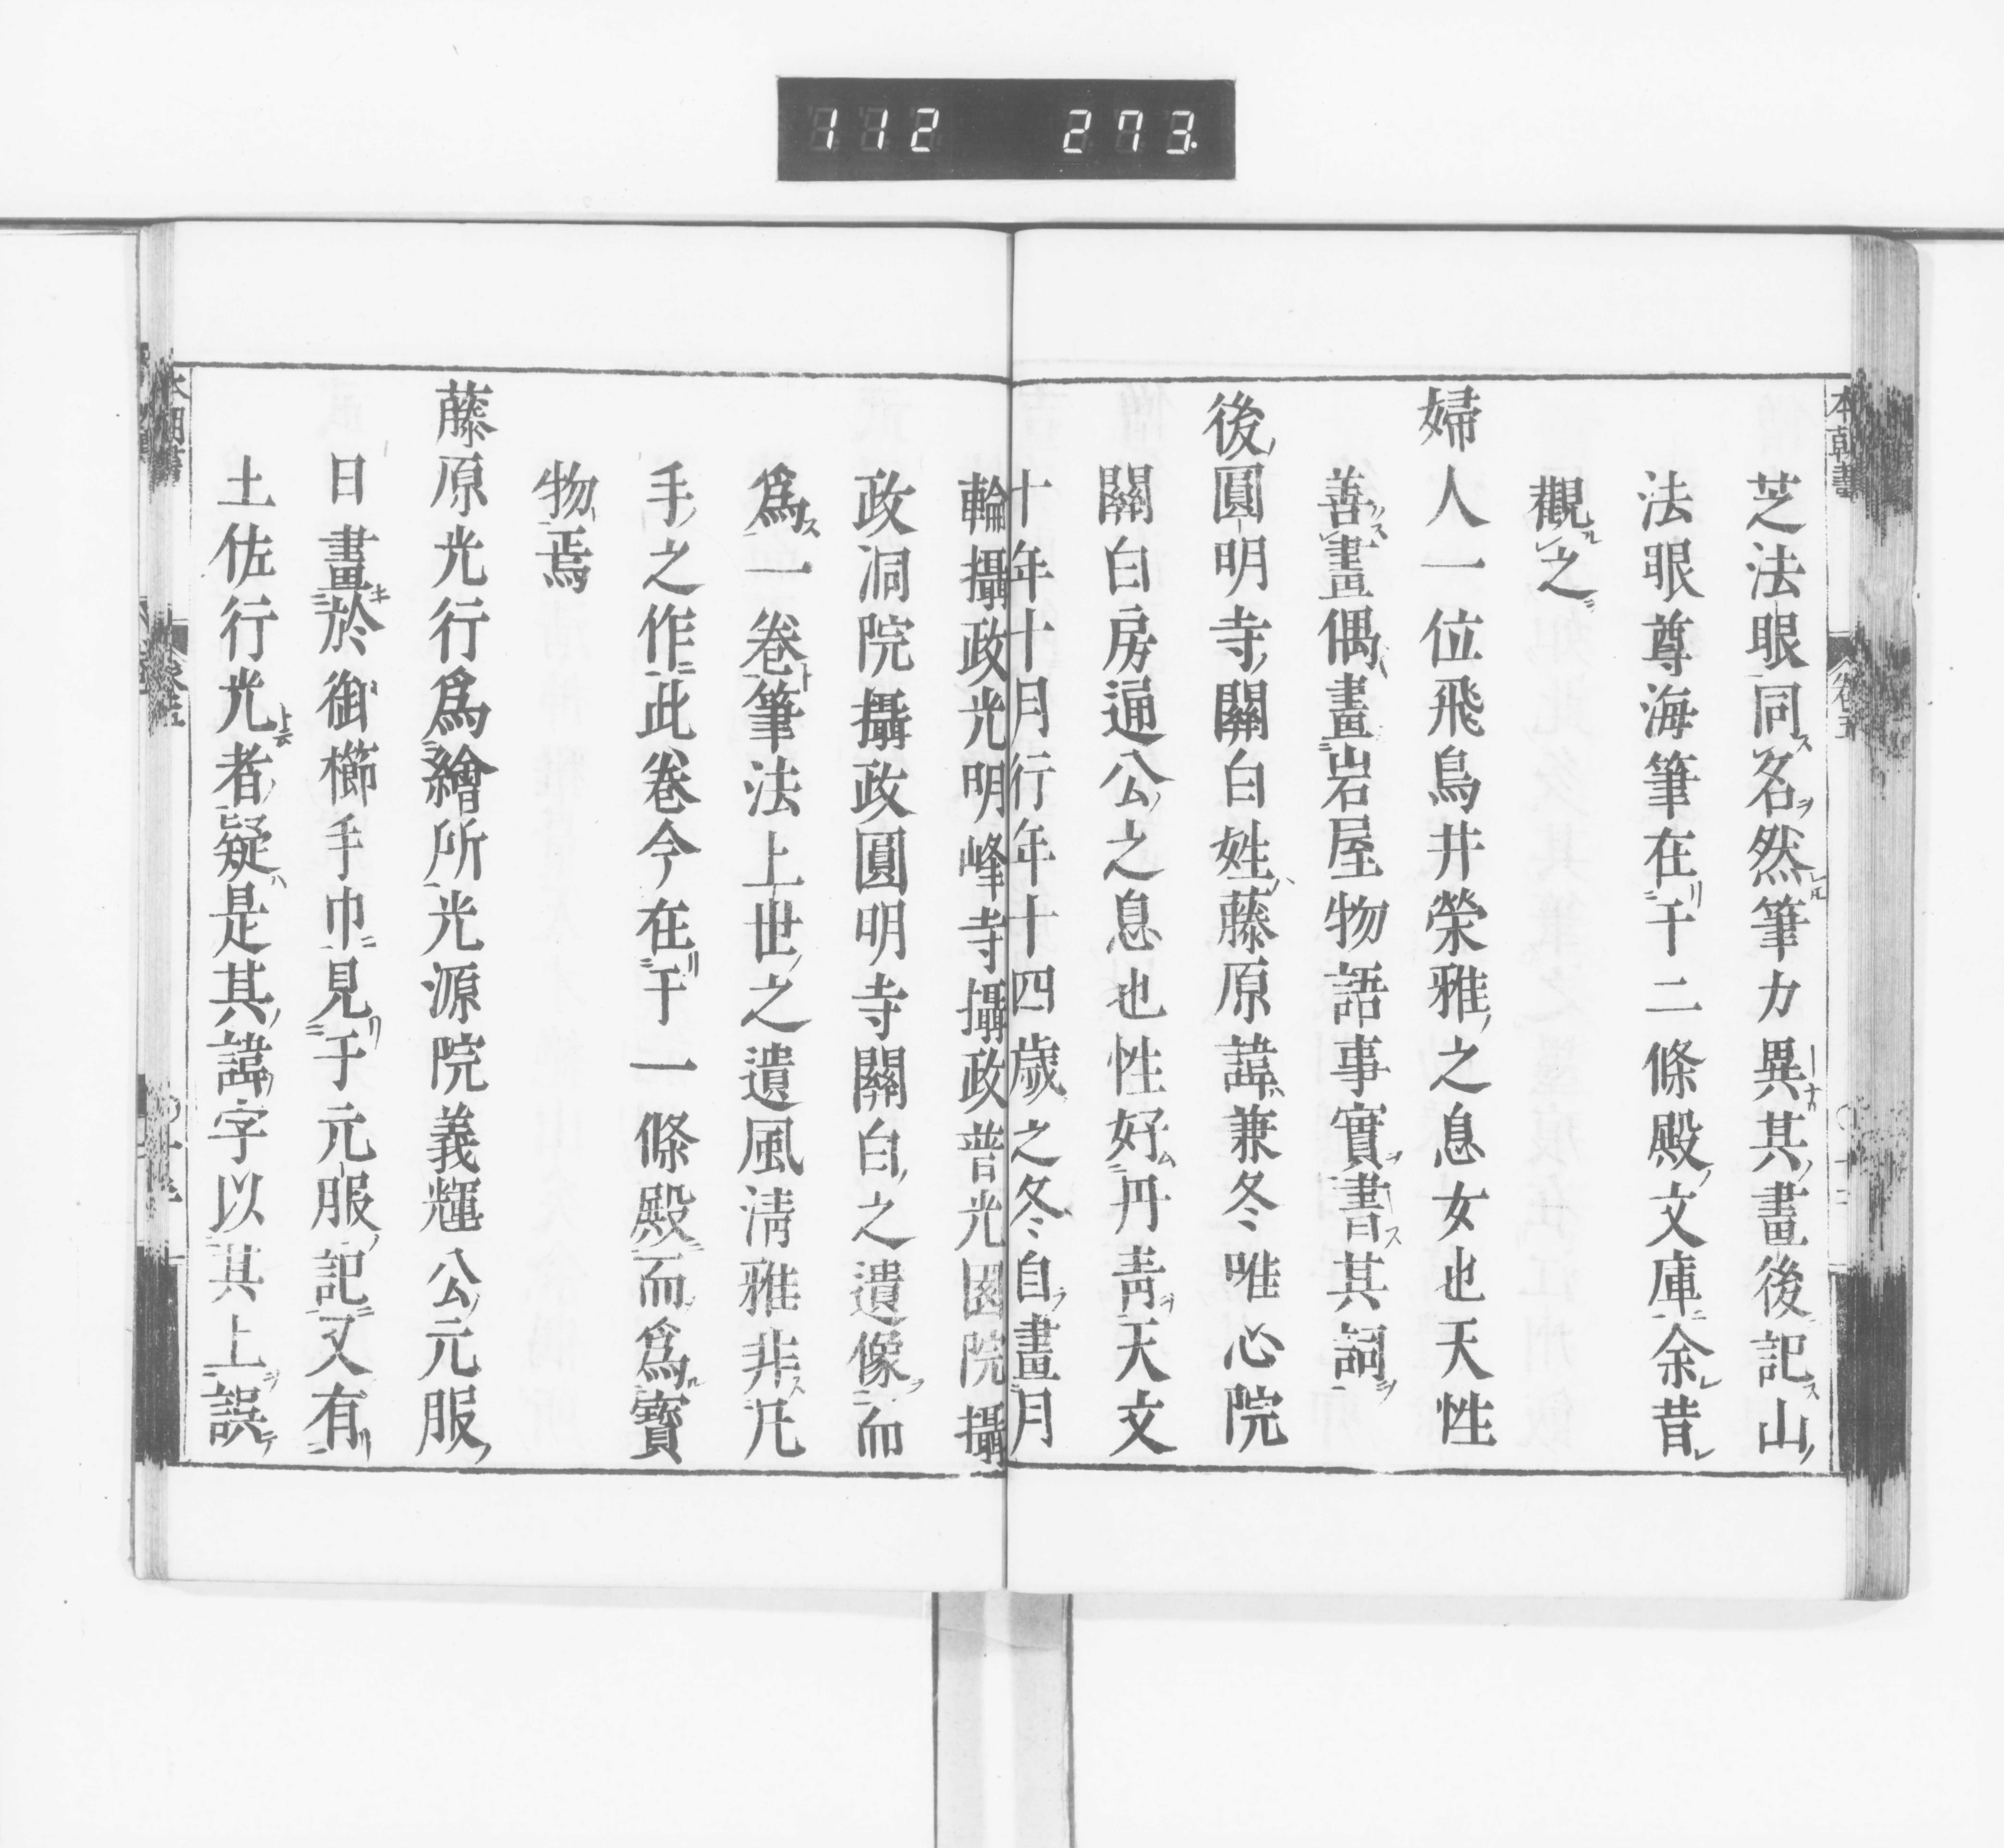 112 273.
本朝畫
卷五
芝法眼同名然筆力異其畫後記山
法眼尊海筆在于二條殿文庫余昔
觀之
婦人一位飛鳥井榮雅之息女也天性
善畫偶畫岩屋物語事實書其詞
後圓明寺關白姓藤原諱兼冬唯心院
關白房通公之息也性好丹青天文
十年十月行年十四歲之冬自畫月
輪攝政光明峰寺攝政普光園院攝
政洞院攝政圓明寺關白之遺像而
爲一卷筆法上世之遺風淸雅非凡
手之作此卷今在于一條殿而爲寶
物焉
藤原光行爲繪所光源院義輝公元服
日畫於御櫛手巾見于元服記又有
土佐行光者疑是其諱字以其上誤